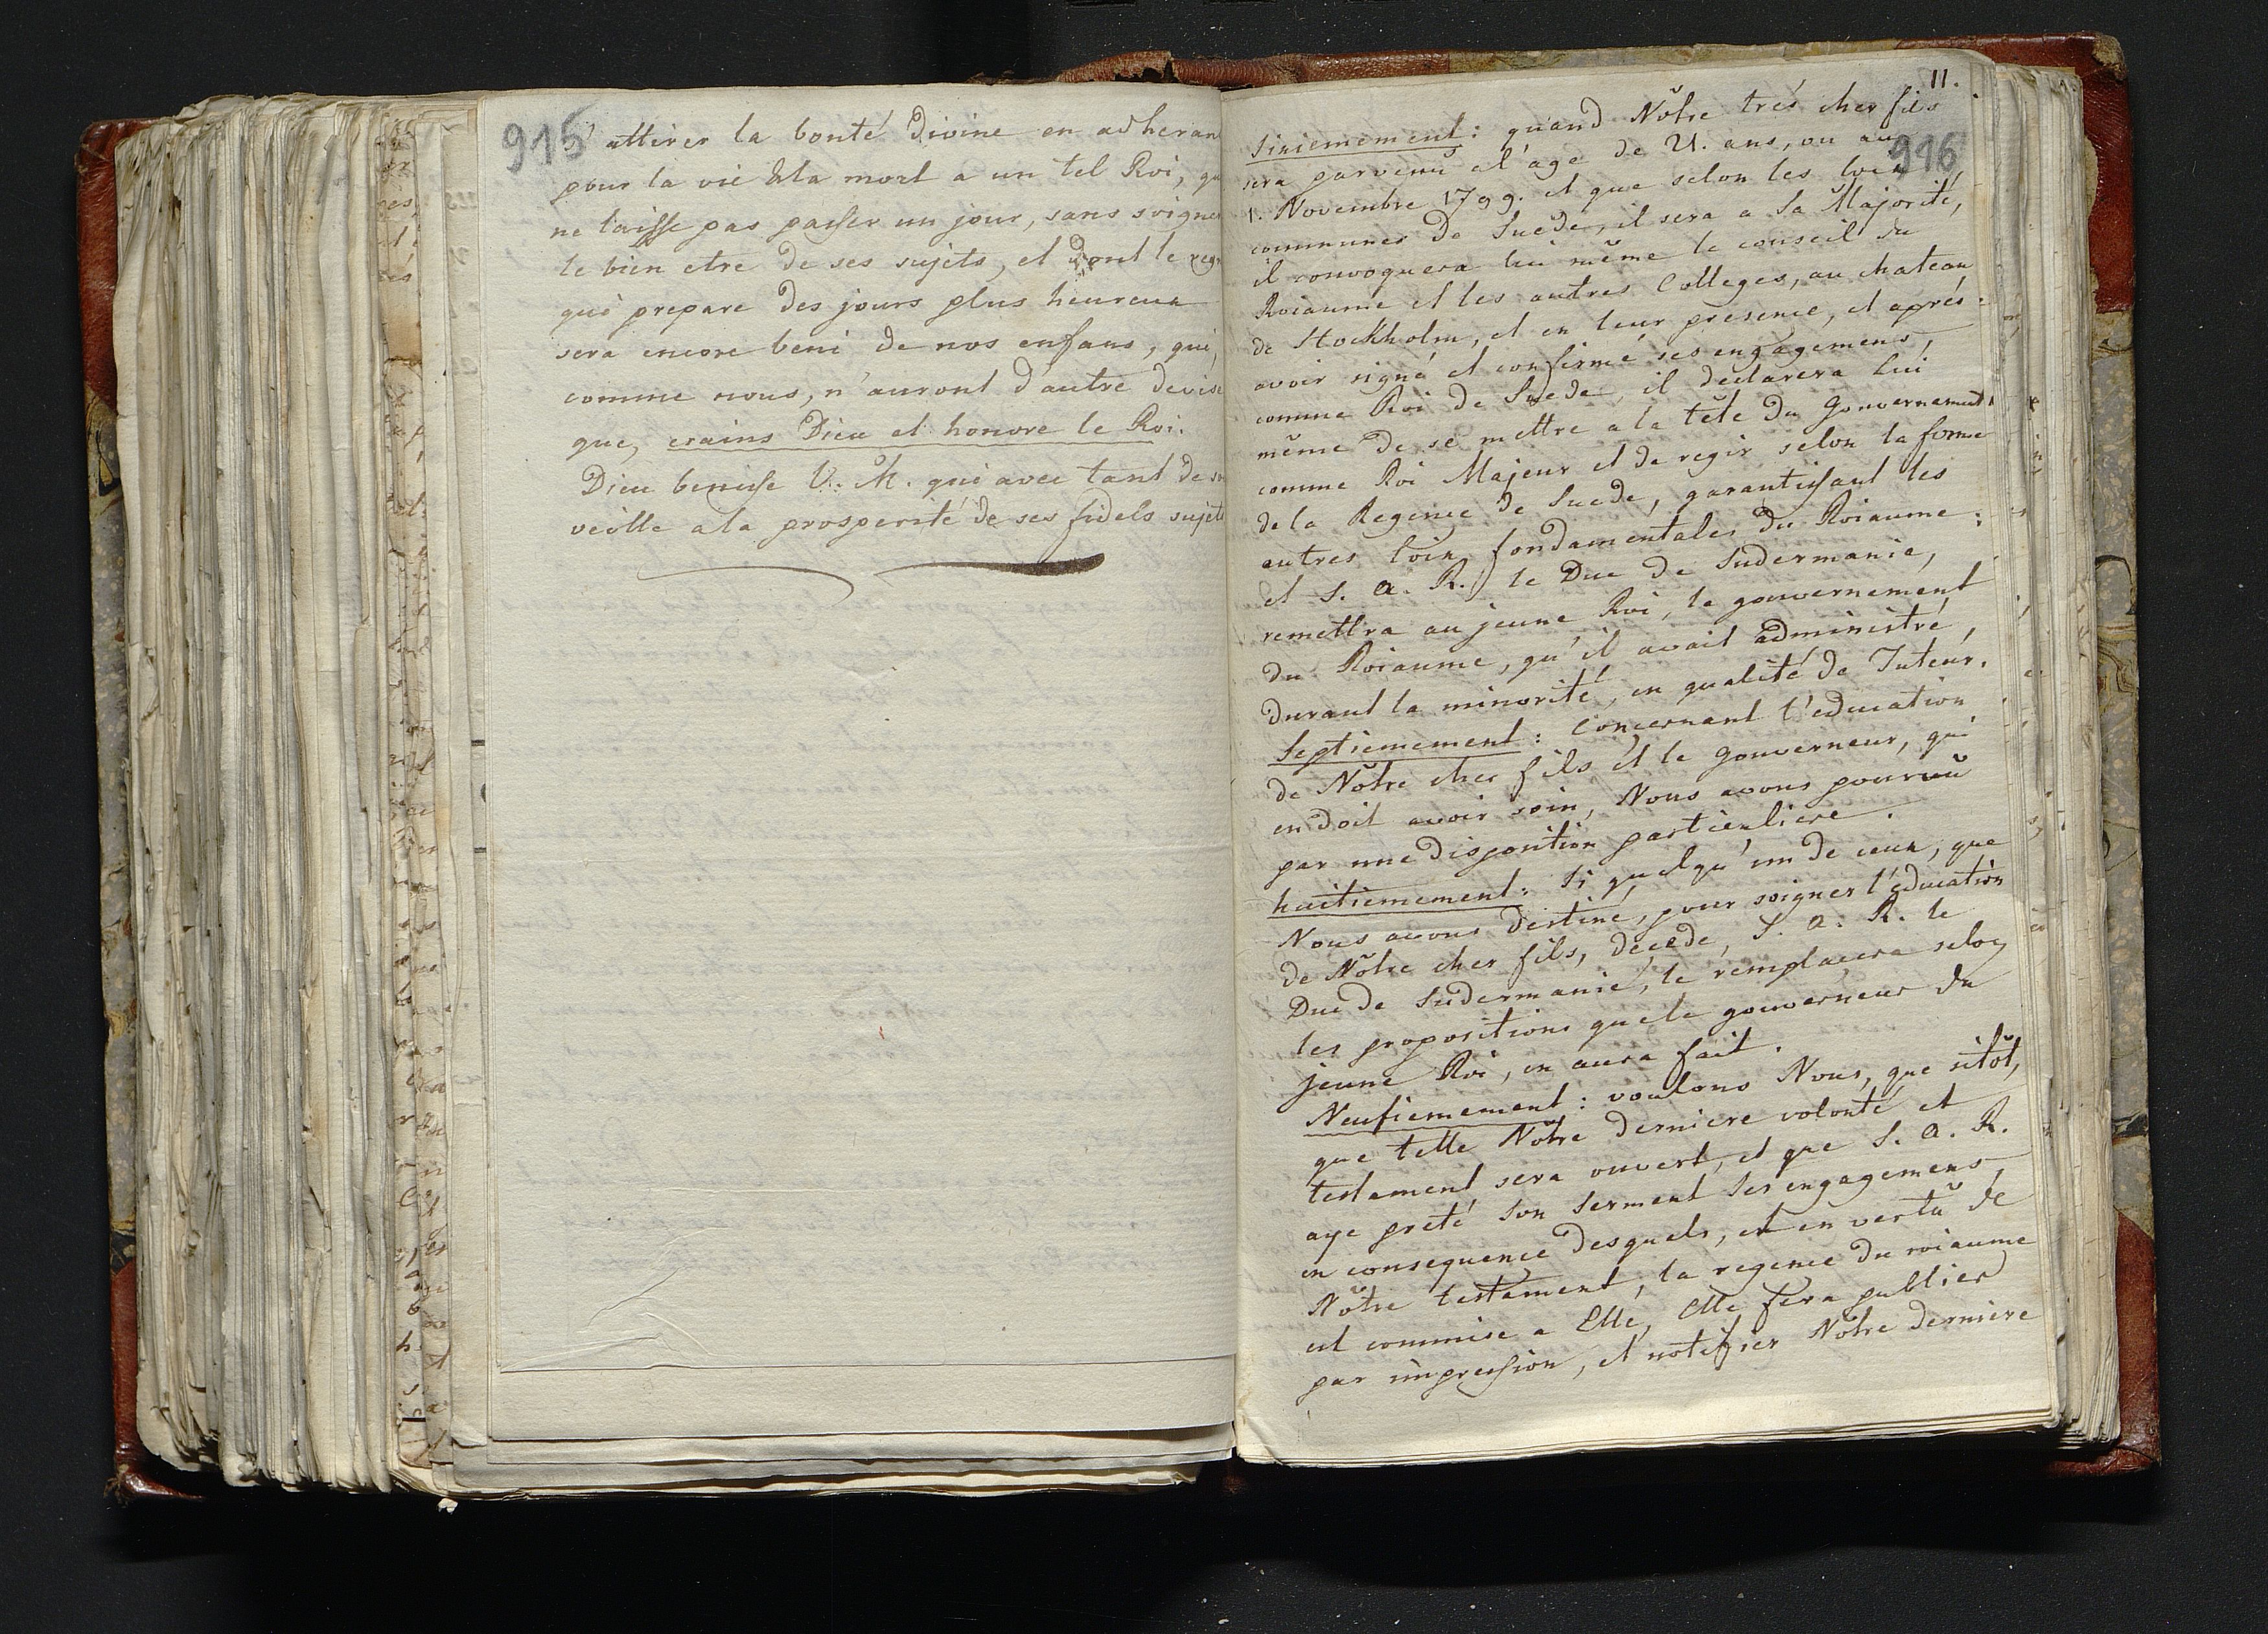 915
s'attirer la bonté Divine en adheran
pour la vie & la mort a un tel Roi, qu
ne laisse pas passer un jour, sans soigne
le bien etre de ses sujets, et dont le reg
qui prepare des jours plus heureux
sera encore beni de nos enfans, qui,
comme nous, n'auront d'autre devise
que, crains Dieu et honore le Roi.
Dieu benisse V. M. qui avec tant de
veille a la prosperité de ses fidels sujets
11.
916
Sixiemement: quand Nôtre trés cher fils
sera parvenû a l'age de 21. ans, ou au
1. Novembre 1799. et que selon les loix
communes de Suede, il sera a Sa Majorité,
il convoquera lui même le conseil du
Roiaume et les autres Colleges, au chateau
de Stockholm, et en leur presence, et aprés
avoir signé et confirmé ses engagemens,
comme Roi de Suede, il declarera lui
même de se mettre a la tête du Gouvernement
comme Roi Majeur et de regir selon la forme
de la Regence de Suede, garantissant les
autres loix fondamentales du Roiaume;
et S. A. R. le Duc de Sudermanie,
remettra au jeune Roi, le gouvernement
du Roiaume, qu'il avait administré,
durant la minorité, en qualité de Tuteur.
Septiemement: Concernant l'education
de Nôtre cher fils et le Gouverneur, qui
en doit avoir soin, Nous avons pourvû
par une disposition particuliere.
huitiemement: Si quelqu'un de ceux, que
Nous avons destiné, pour soigner l'education
de Nôtre cher fils, decede, S. A. R. le
Duc de Sudermanie, le remplacera selon
les propositions que le gouverneur du
jeune Roi, en aura fait.
Neufiemement: voulons Nous, que sitôt,
que telle Nôtre derniere volonté et
testament sera ouvert, et que S. A. R.
aye preté Son Serment Ses engagemens,
en consequence desquels, et en vertû de
Nôtre testament, la regence du roiaume
est commise a Elle, Elle fera publier
par impression, et notifier Nôtre derniere